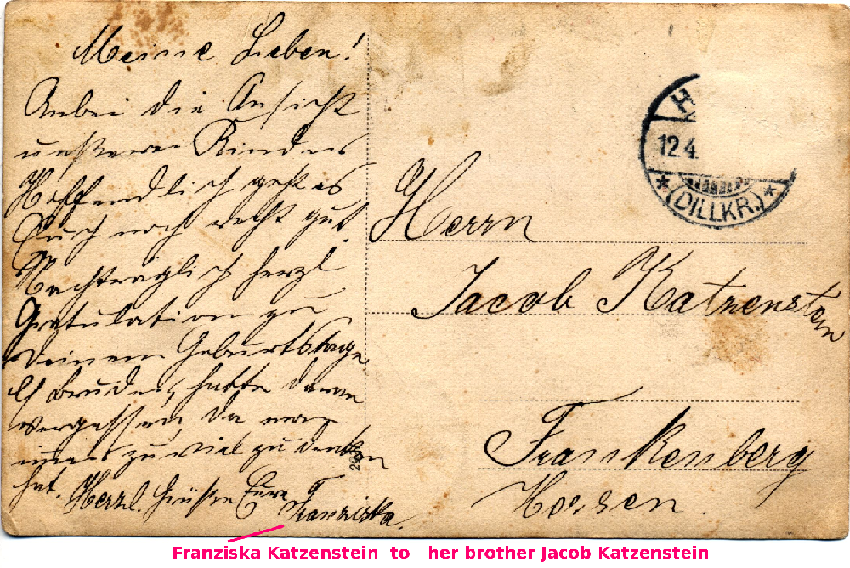 Meine Lieben!
Anbei die Ansicht
unseres Kindes
Hoffendlich geht es
Euch noch recht gut.
Nachträglich herzl
Gratulation zu
Deinem Geburtstage
lb Bruder, hatte daran
vergessen da man
immer zu viel zu denken
hat. Herzl. Grüße Eure
Franziska.
H
12.4.
*(DILLKR.)*
Herrn
Jacob Katzenstein
Frankenberg
Hessen.
Franziska Katzenstein to her brother Jacob Katzenstein